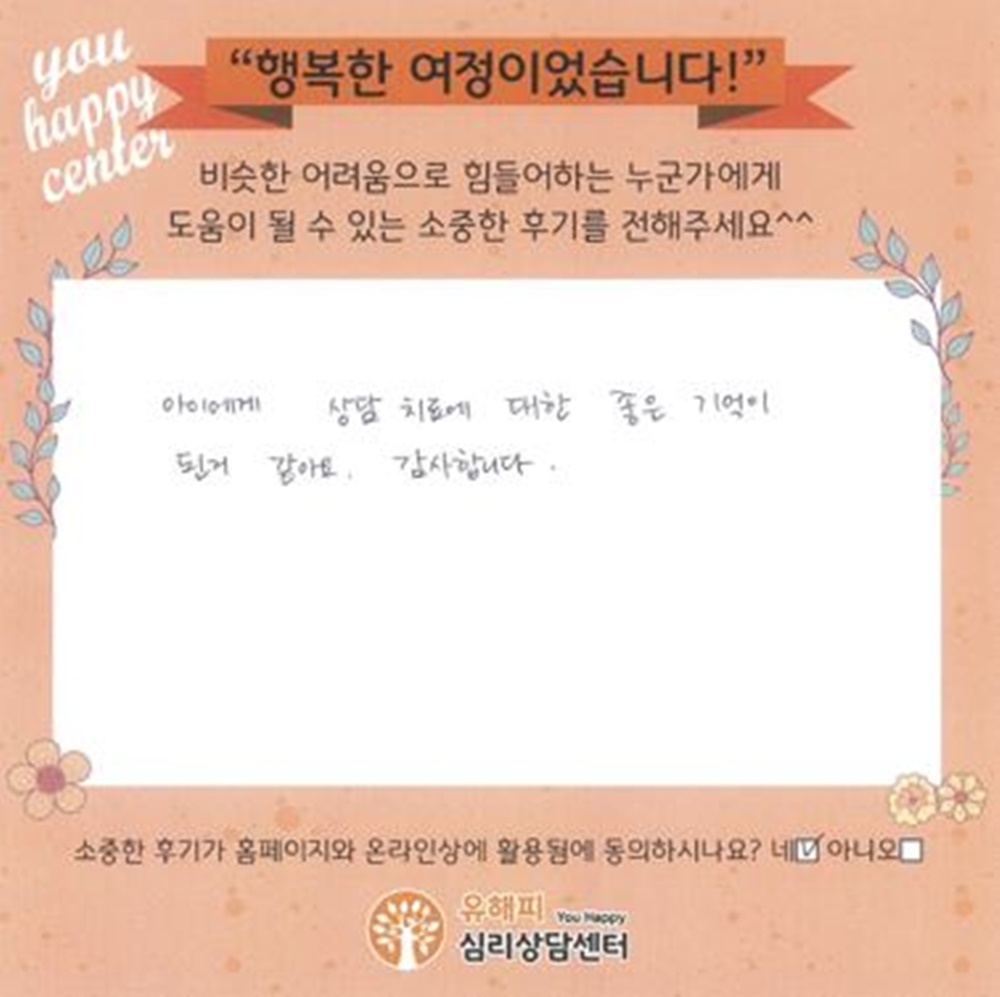 you
happy
center
“행복한 여정이었습니다!”
비슷한 어려움으로 힘들어하는 누군가에게
도움이 될 수 있는 소중한 후기를 전해주세요^^
아이에게 상담 치료에 대한 좋은 기억이
된거 같아요. 감사합니다.
소중한 후기가 홈페이지와 온라인상에 활용됨에 동의하시나요? 네☑ 아니오☐
유해피 You Happy
심리상담센터